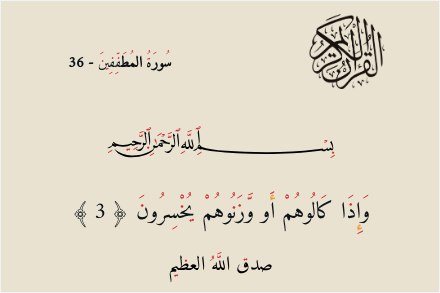 القرآن الكريم
سُورَةُ المُطَفِّفِينَ - 36
بِسْمِ ٱللَّهِ ٱلرَّحْمَٰنِ ٱلرَّحِيمِ
وَإِذَا كَالُوهُمْ أَو وَّزَنُوهُمْ يُخْسِرُونَ ﴿ 3 ﴾
صدق اللَّهُ العظيم